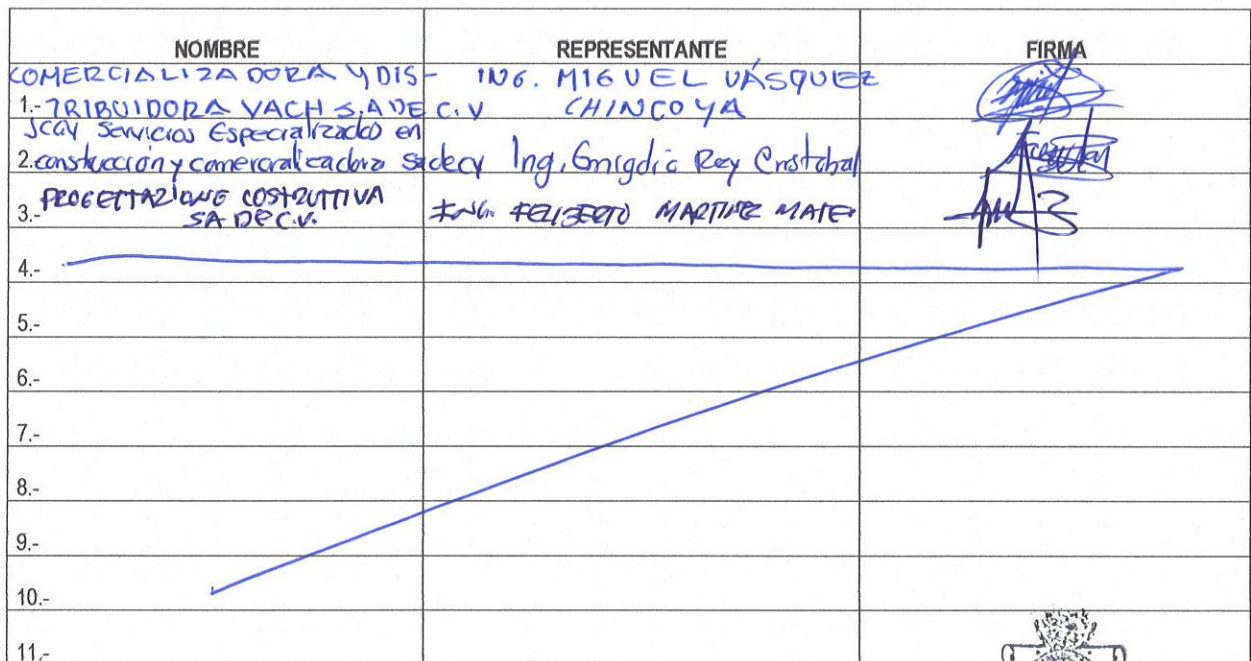 NOMBRE REPRESENTANTE FIRMA
COMERCIALIZADORA Y DIS- ING. MIGUEL VÁSQUEZ
1.- TRIBUIDORA VACH S.A DE C.V CHINCOYA
Scay Servicios Especializados en
2. construcción y comercializadora sadecv Ing. Emigdio Rey Cristobal
PROGETTAZIONE COSTRUTTIVA
3.- SA DE C.V. ING. FELIBERTO MARTINEZ MATEO
4.-
5.-
6.-
7.-
8.-
9.-
10.-
11.-